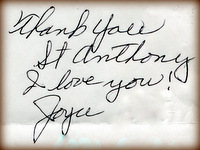 Thank you
St Anthony
I love you!
Joyce